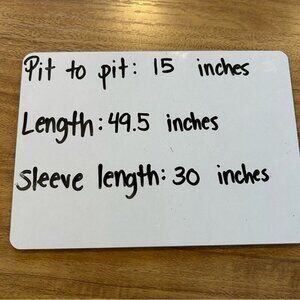 Pit to pit: 15 inches
Length: 49.5 inches
Sleeve length: 30 inches